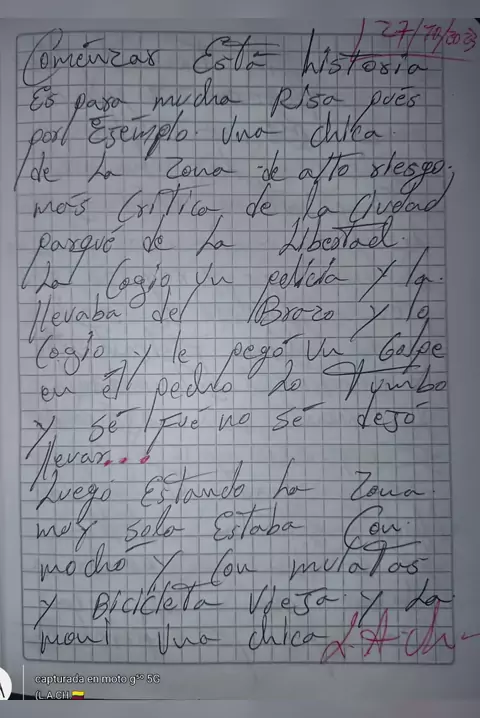 27/10/2023
Comenzar Está historia
Es para mucha Risa pués
por Ejemplo. Una chica.
de La Zona de alto riesgo,
más Crítica de la Ciudad
parqué de La Libertad.
La Cogio un policia y la.
llevaba del Brazo y lo
Cogio y le pegó un Golpe
en él pecho Lo Tumbo
y sé fué no sé dejó
llevar...
Luegó Estando La Zona.
muy sola Estaba Con.
mochó y Con mulatas
y Bicicleta Vieja y La
moni una chica L.A.ch-
capturada en moto g⁵⁰ 5G
(L.A.CH🇨🇴